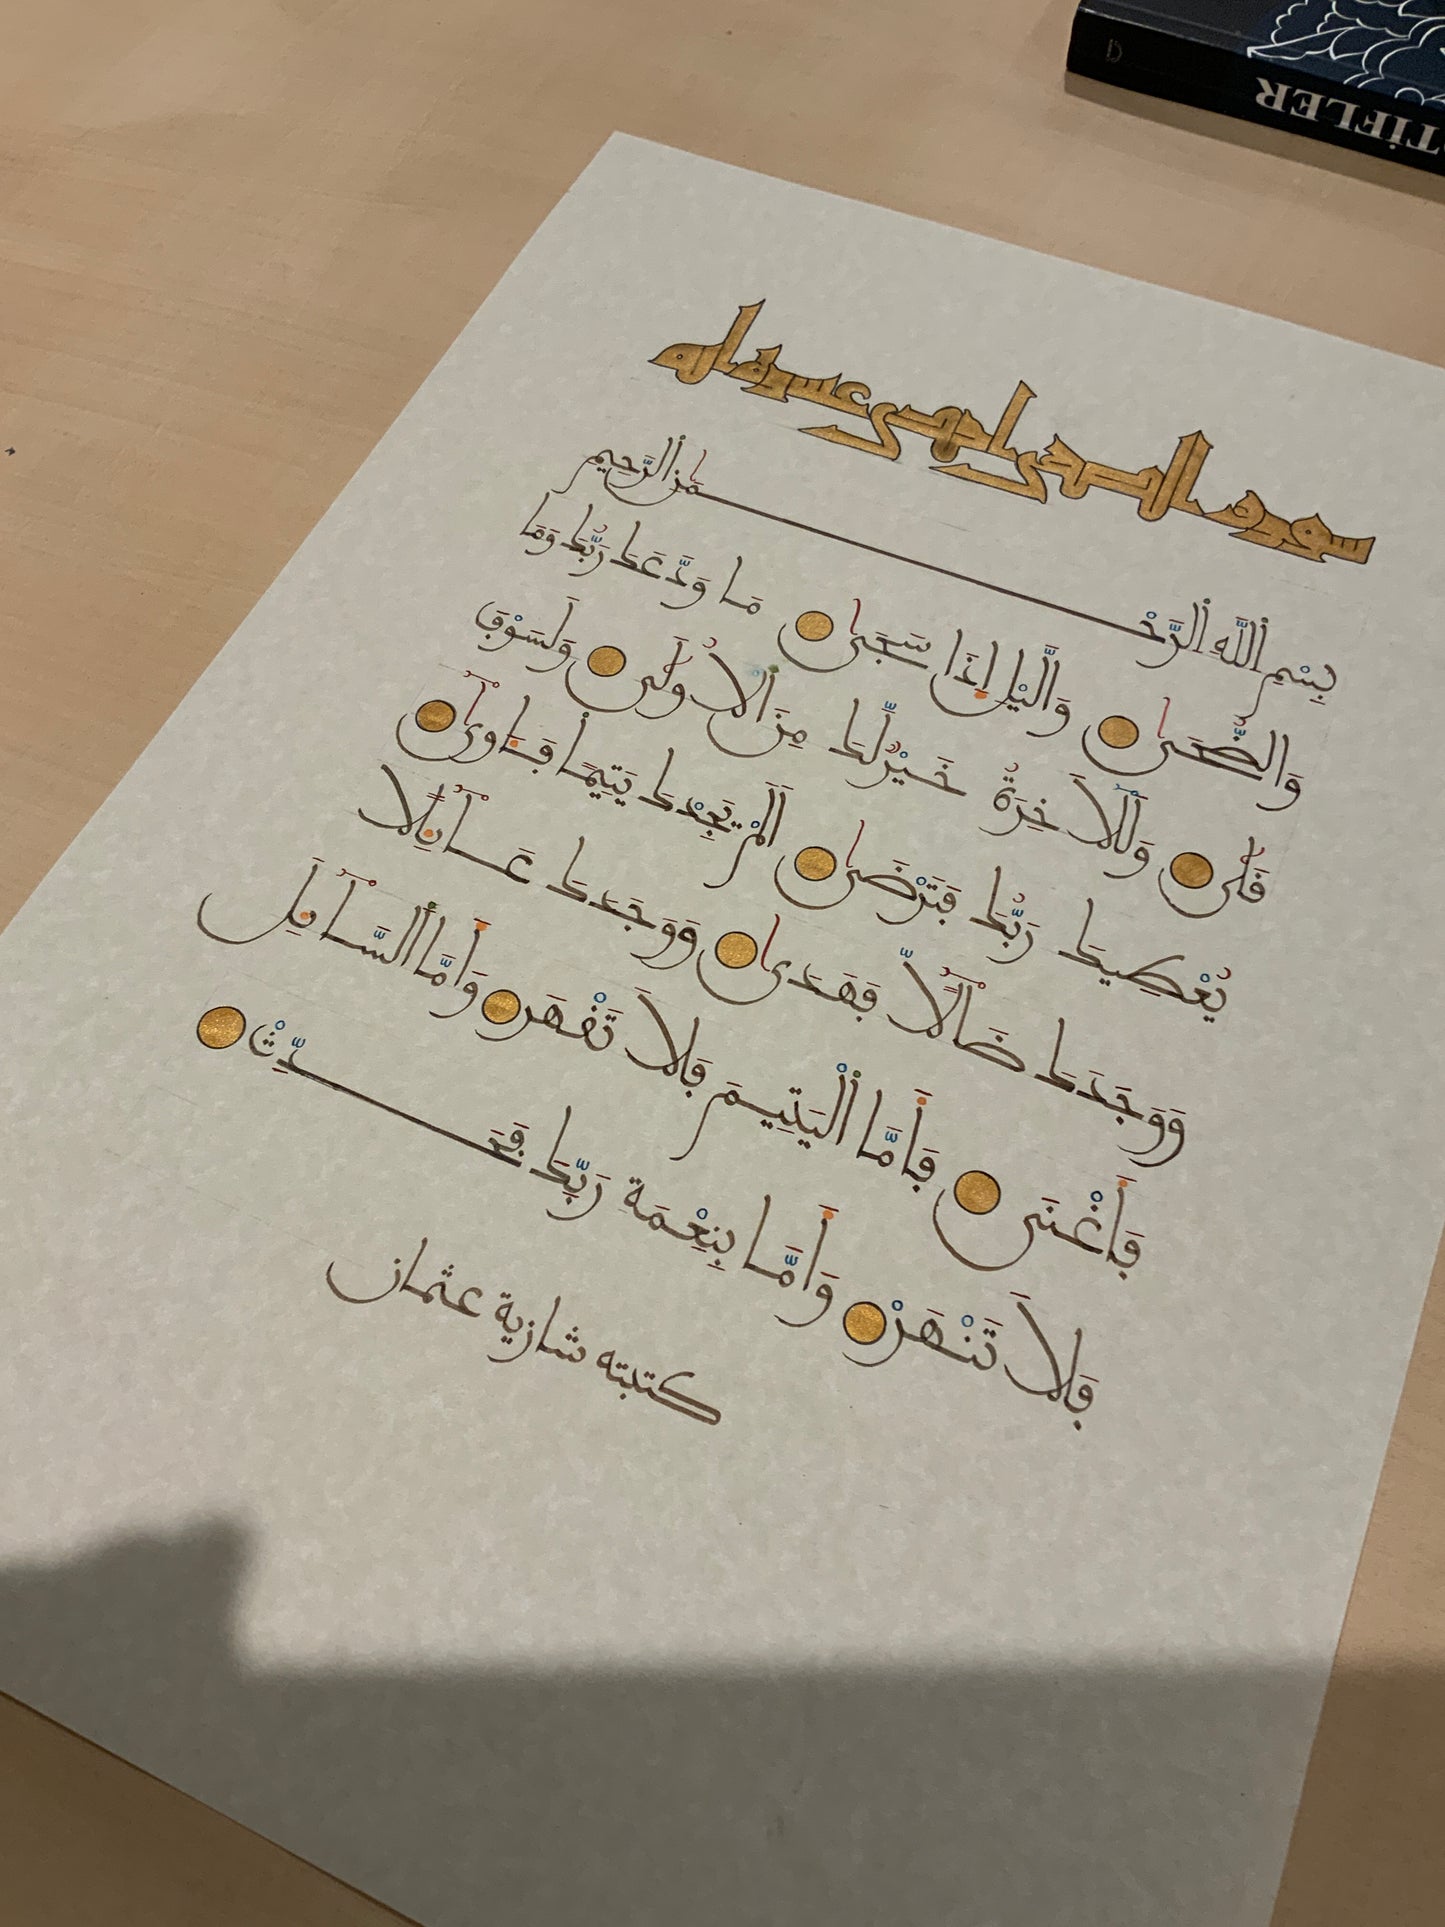 TİFLER
سورة الضحى إحدى عشرة آية
بِسْمِ اللَّهِ الرَّحْمَٰنِ الرَّحِيمِ
وَالضُّحَىٰ وَالَّيْلِ إِذَا سَجَىٰ مَا وَدَّعَكَ رَبُّكَ وَمَا
قَلَىٰ وَلَلْآخِرَةُ خَيْرٌ لَّكَ مِنَ الْأُولَىٰ وَلَسَوْفَ
يُعْطِيكَ رَبُّكَ فَتَرْضَىٰ أَلَمْ يَجِدْكَ يَتِيمًا فَـَٔاوَىٰ
وَوَجَدَكَ ضَآلًّا فَهَدَىٰ وَوَجَدَكَ عَآئِلًا
فَأَغْنَىٰ فَأَمَّا الْيَتِيمَ فَلَا تَقْهَرْ وَأَمَّا السَّآئِلَ
فَلَا تَنْهَرْ وَأَمَّا بِنِعْمَةِ رَبِّكَ فَحَدِّثْ
كتبته شازية عثمان